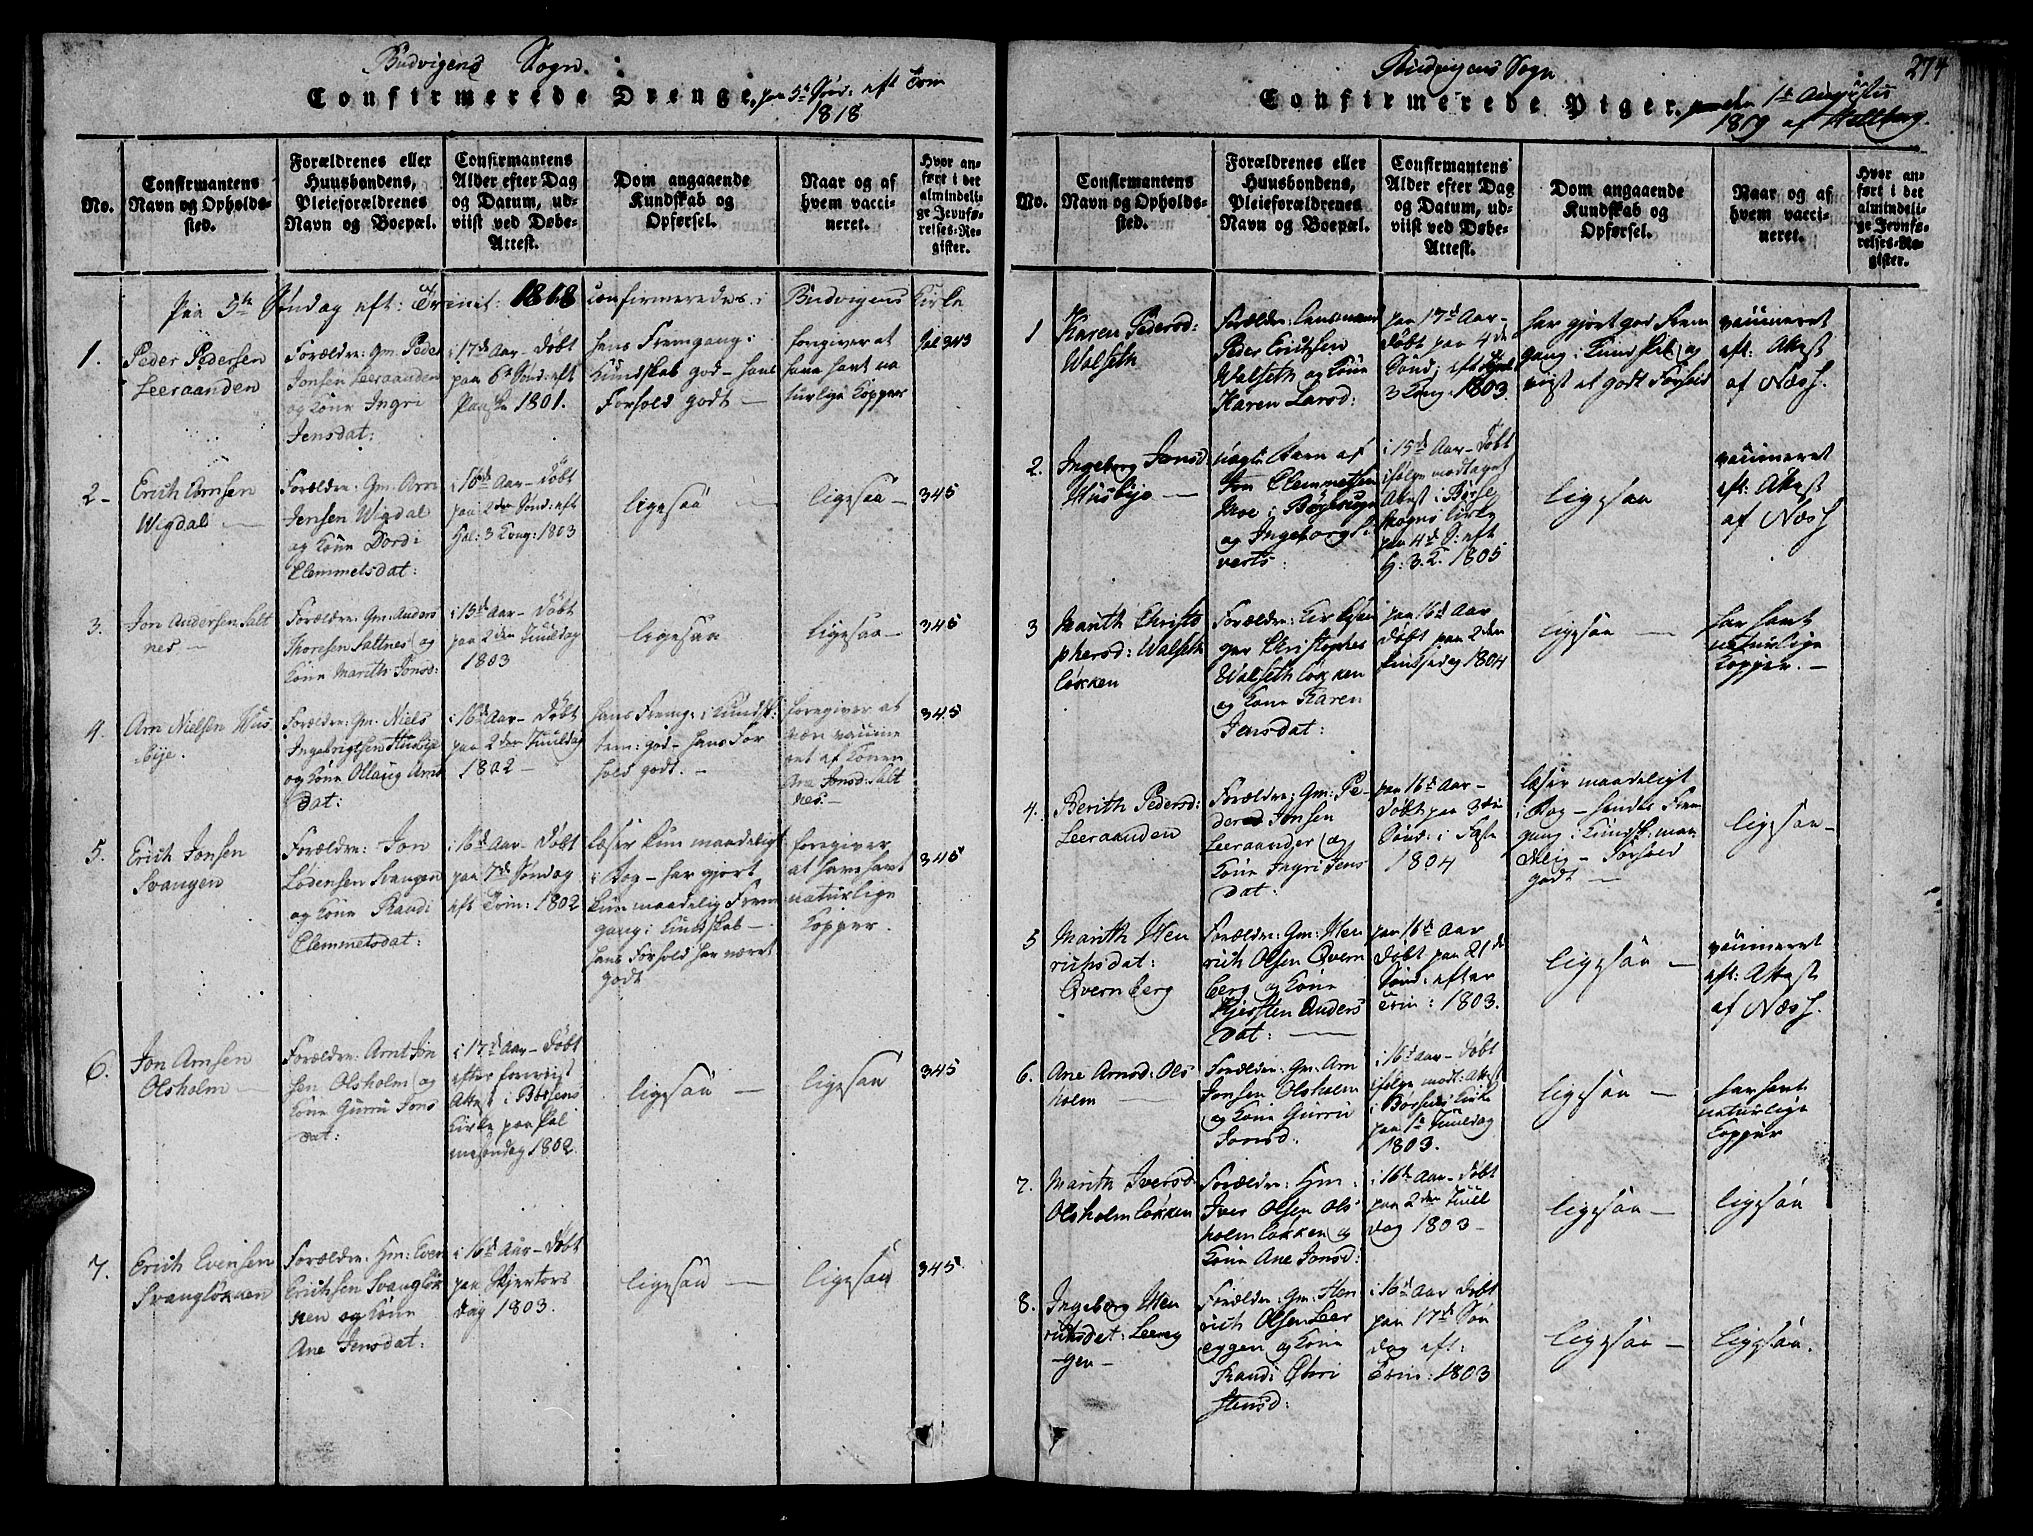 Budvigens Sogn.
Confirmerede Drenge, paa 5te Sönd: eft Trin
1818
No.
Confirmantens
Navn og Opholds-
sted.
Forældrenes eller
Huusbondens,
Pleieforældrenes
Navn og Boepæl.
Confirmantens
Alder efter Dag
og Datum, ud-
viist ved Døbe-
Attest.
Dom angaaende
Kundskab og
Opførsel.
Naar og af
hvem vacci-
neret.
Hvor an-
ført i det
almindeli-
ge Jevnfø-
relses-Re-
gister.
Paa 5te Söndag eft: Trinet: 1818 confirmeredes i Budvigens Kirke
1.
Peder Pedersen
Leeraanden
Forældre: Gm: Peder
Jonsen Leeraanden
og Kone Ingri
Jensdat:
i 17de Aar - döbt
paa 6te Sönd: eft
Paaske 1801.
hans Fremgang i
Kundskab god - hans
Forhold godt -
foregiver at
have havt na
turlige Kopper
fol 343
2 -
Erich Arnsen
Wigdal -
Forældre: Gm: Arn
Jensen Wigdal
og Kone Dordi
Clemmetsdat:
i 16de Aar - döbt
paa 2den Sönd: eft
Hel: 3 Kong: 1803
ligesaa -
ligesaa -
345
3.
Jon Andersen Salt
nes -
Forældre: Gm: Anders
Thoresen Saltnes og
Kone Marith Jonsd:
i 15de Aar - Döbt
paa 2den Juuldag
1803
ligesaa
ligesaa -
345
4.
Arn Nielsen Hus
bye.
Forældre: Gm: Niels
Ingebrigtsen Husbye
og Kone Ollaug Arns
dat:
i 16de Aar - Döbt
paa 2den Juuldag
1802 -
hans Fremg: i Kundsk:
god - hans For
hold godt. -
foregiver at
være vaccine
ret af Konen
Ane Jonsd: Salt
nes -
345
5.
Erich Jonsen
Svangen
Forældre: Jon
Lodensen Svangen
og Kone Randi
Clemmetsdat:
i 16de Aar - Döbt
paa 7de Söndag
eft Trin: 1802
læser kun maadeligt
i Bog - har gjort
kun maadelig Frem
gang i Kundskab -
hans Forhold har været
godt
foregiver
at have havt
naturlige
Kopper.
345
6.
Jon Arnsen
Olsholm -
Forældre: Arnt Jon
sen Olsholm og
Kone Gurru Jons
dat:
i 17de Aar - Döbt
efter foreviist
Attest i Börsens
Kirke paa Pal
mesöndag 1802.
ligesaa -
ligesaa
345
7.
Erich Evensen
Svanglökken
Forældre: Hm: Even
Erichsen Svanglök
ken og Kone
Ane Jensdat:
i 16de Aar - Döbt
paa Skjertors
dag 1803.
ligesaa -
ligesaa
345
274
Budvigens Sogn
Confirmerede Piger. den 1te Augustii
1819 af Hellberg.
No.
Confirmantens
Navn og Opholds-
sted.
Forældrenes eller
Huusbondens,
Pleieforældrenes
Navn og Boepæl.
Confirmantens
Alder efter Dag
og Datum, ud-
viist ved Døbe-
Attest.
Dom angaaende
Kundskab og
Opførsel.
Naar og af
hvem vacci-
neret.
Hvor an-
ført i det
almindeli-
ge Jevnfø-
relses-Re-
gister.
1
Karen Pedersd:
Walseth
Forældre: Lensmand
Peder Erichsen
Walseth og Kone
Karen Larsd:
paa 17de Aar -
döbt paa 4de
Sönd: eft
3 Kong: 1803.
har gjort god Frem
gang i Kundskab og
viist et godt Forhold
vaccineret
eft: Attest
af Næss.
2.
Ingeborg Jonsd:
Husbye -
uægte Barn af
Jon Clemmetsen
Moe i
og Ingeborg Si
verts:
i 15de Aar - Döbt
ifølge modtaget
Attest i Börse
Sogns Kirke
paa 4de S: eft
H: 3 K. 1805
ligesaa
vaccineret
eft: Attest
af Næss
3
Marith Christo
phersd: Walseth
lökken
Forældre:
Christopher
Walsethlökken
og Kone Karen
Jensdat:
paa 16de Aar
döbt paa 2den
Pintsedag 1804
ligesaa -
har havt
naturlige
Kopper. -
4.
Berith Pedersd:
Leeraanden
Forældre: Gm: Pe-
der Jonsen
Leeraanden og
Kone Ingri Jens
dat:
paa 16de Aar -
döbt paa 3die
Sönd: i Faste
1804
læser maadeligt
i Bog - hendes Frem
gang i Kundsk: maa
delig - Forhold
godt -
ligesaa -
5
Marith Hen
richsdat:
Qvernberg
Forældre: Gm: Hen
rich Olsen Qvern
berg og Kone
Kjersten Anders
dat: -
paa 16de Aar
döbt paa 21de
Sönd: efter
Trin: 1803.
ligesaa -
vaccineret
eft: Attest
af Næss.
6.
Ane Arnsd: Ols
holm -
Forældre: Gm: Arn
Jonsen Olsholm
og Kone Gurru
Jonsd:
i 16de Aar - Döbt
ifølge modt: Attest
i Börsens Kirke
paa 1ste Juuldag
1803.
ligesaa -
har havt
naturlige
Kopper
7.
Marith Iversd:
Olsholmlökken
Forældre: Hm:
Iver Olsen Ols
holmlökken og
Kone Ane Jonsd:
i 16de Aar - Döbt
paa 2den Juul
dag 1803 -
ligesaa -
ligesaa
8.
Ingeborg Hen
richsdat: Leereg
gen -
Forældre: Gm: Hen
rich Olsen Leer
eggen og Kone
Randi
stensd:
i 16de Aar döbt
paa 17de Sön
dag eft:
Trin: 1803
ligesaa -
ligesaa.